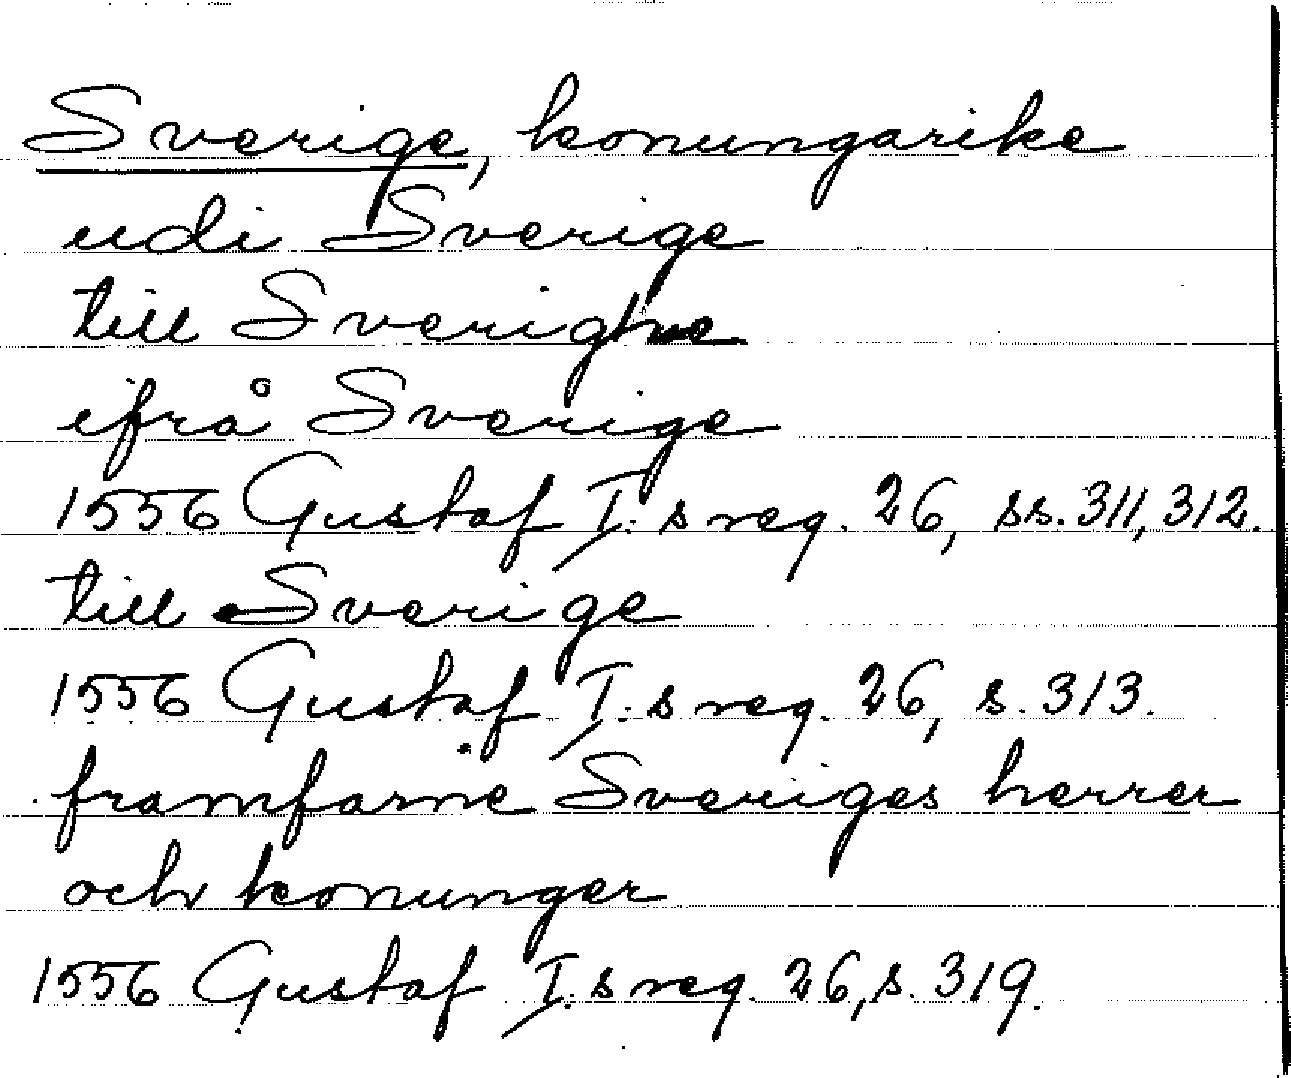 Sverige, konungarike
udi Sverige
till Sverighe
ifrå Sverige
1556 Gustaf I:s reg. 26, ss. 311, 312.
till Sverige
1556 Gustaf I:s reg. 26, s. 313.
framfarne Sveriges herrer
och konunger
1556 Gustaf I:s reg. 26, s. 319.